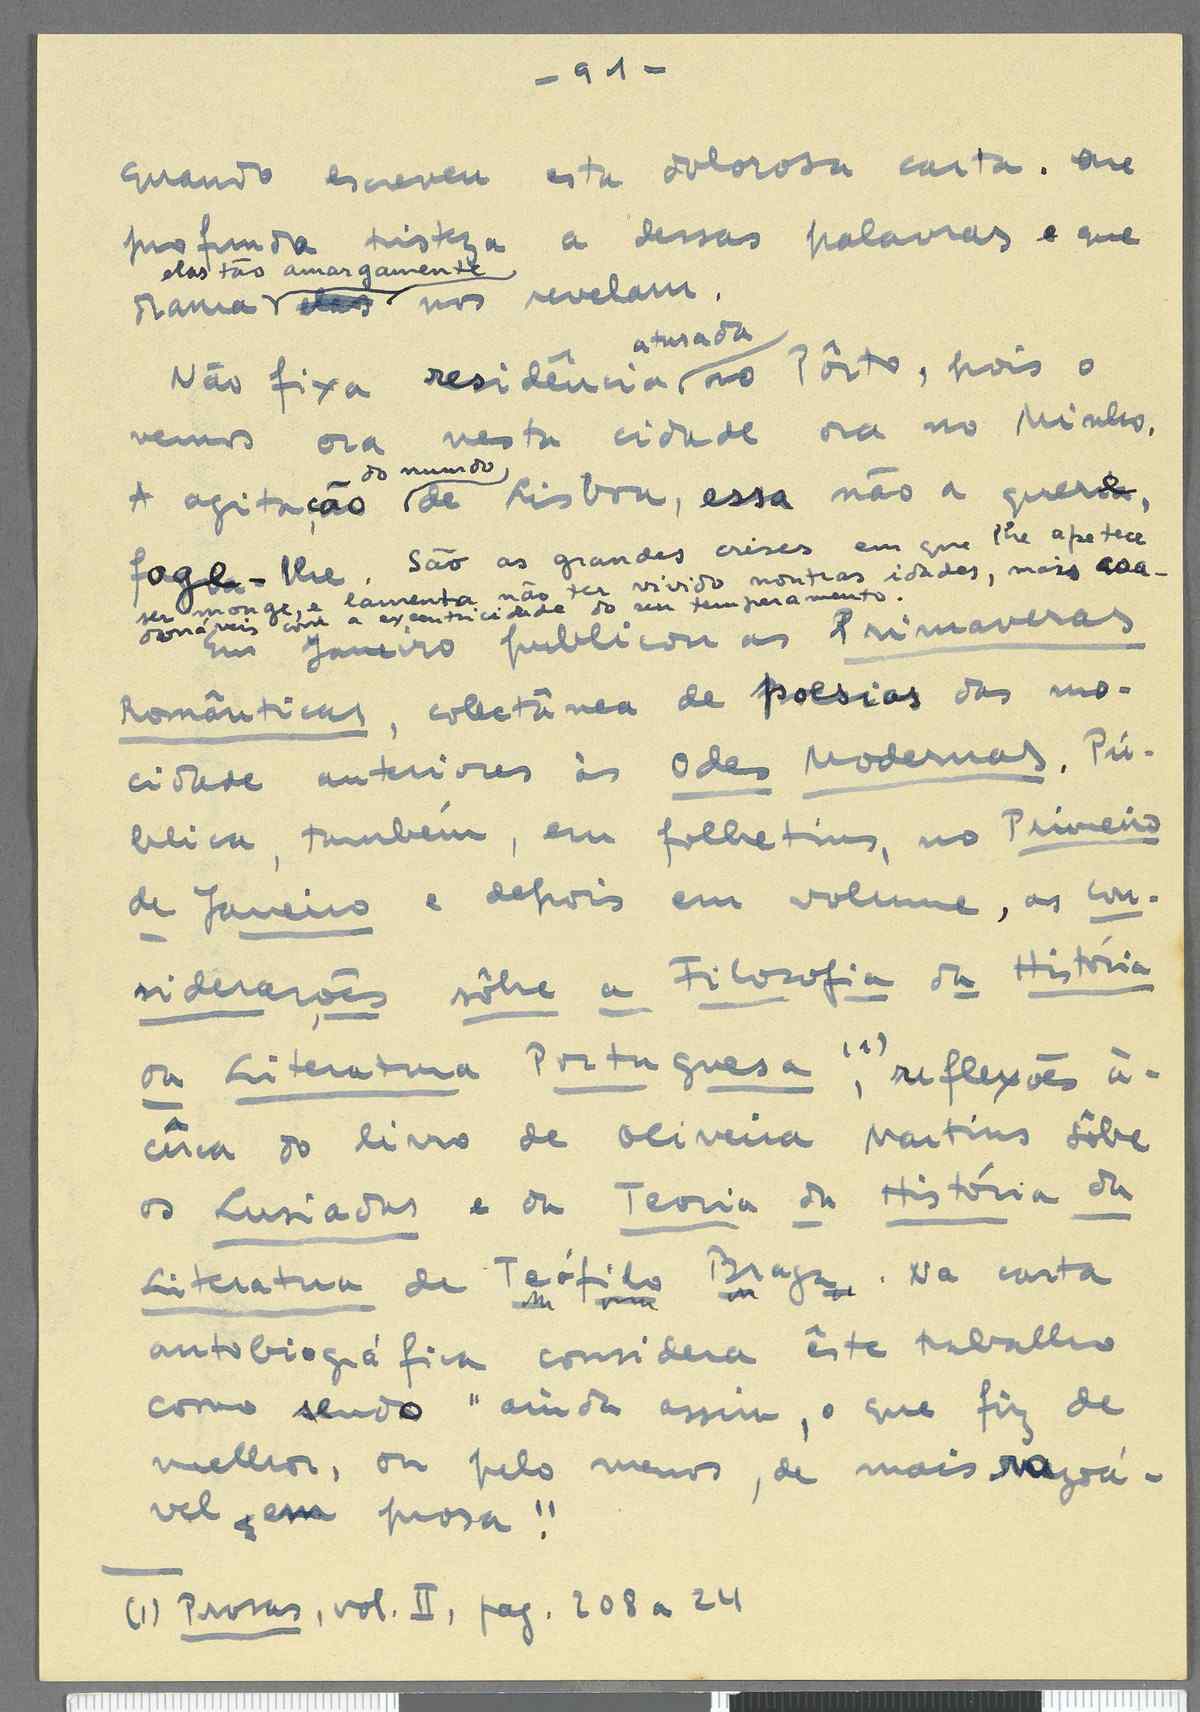 - 91 -
quando escreveu esta dolorosa carta. Que
profunda tristeza a dessas palavras e que
elas tão amargamente
drama elas nos revelam.
aturada
Não fixa residência no Pôrto, pois o
vemos ora nesta cidade ora no Minho.
do mundo
A agitação de Lisboa, essa não a quere,
foge-lhe. São as grandes crises em que lhe apetece
ser monge, e lamenta não ter vivido noutras idades, mais coa-
donáveis com a excentricidade do seu temperamento.
Em Janeiro publicou as Primaveras
Românticas, colectânea de poesias das mo-
cidade anteriores às Odes Modernas. Pú-
blica, também, em folhetins, no Primeiro
de Janeiro e depois em volume, as Con-
siderações sôbre a Filosofia da História
da Literatura Portuguesa (1), reflexões à-
cêrca do livro de Oliveira Martins sôbre
os Lusiadas e da Teoria da História da
Literatura de Teófilo Braga. Na carta
autobiográfica considera êste trabalho
como sendo "ainda assim, o que fiz de
melhor, ou pelo menos, de mais razoá-
vel em prosa".
(1) Prosas, vol. II, pag. 208 a 24